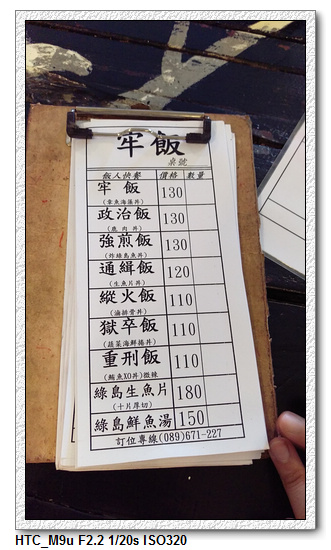 牢飯
桌號
飯人快餐 價格 數量
牢飯 130
(章魚海藻丼)
政治飯 130
(鹿肉丼)
強煎飯 130
(炸綠島魚丼)
通緝飯 120
(生魚片丼)
縱火飯 110
(滷排骨丼)
獄卒飯 110
(蔬菜海鮮捲丼)
重刑飯 110
(鮪魚XO丼)微辣
綠島生魚片 180
(十片厚切)
綠島鮮魚湯 150
訂位專線(089)671-227
HTC_M9u F2.2 1/20s ISO320